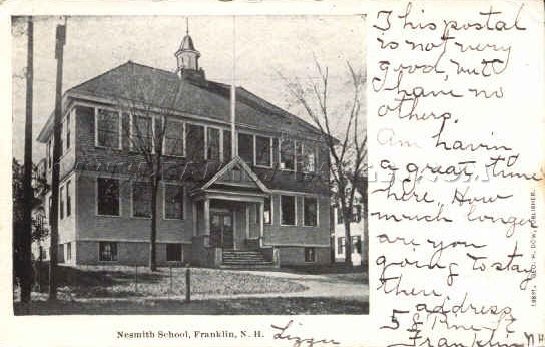 This postal
is not very
good, but
I have no
others.
Am havin
a great time
here. How
much longer
are you
going to stay
there.
address
Franklin NH
Nesmith School, Franklin, N. H.
Lizzie
GEO. H. DOW, PUBLISHER.